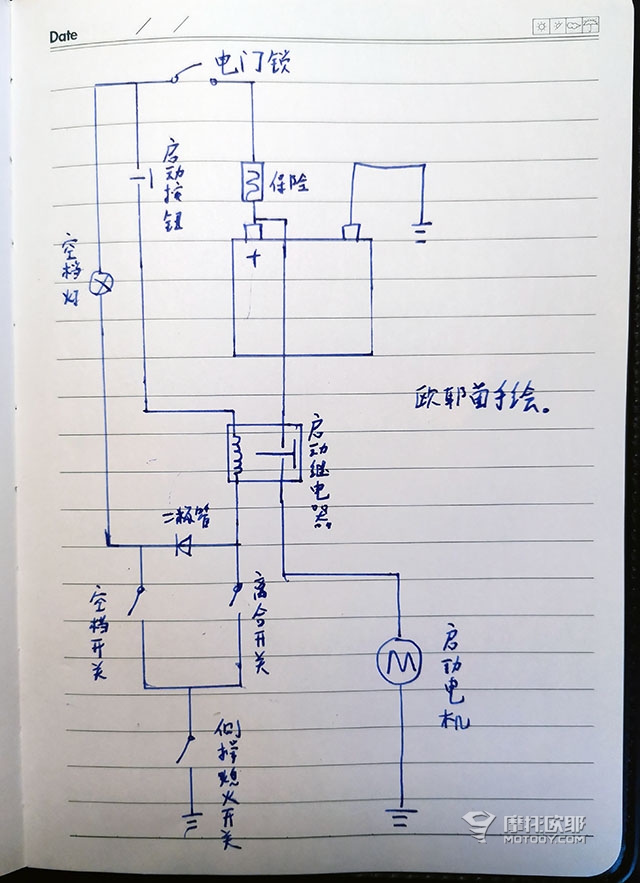 Date / /
电门锁
启动按钮
保险
+
空档灯
欧耶菌手绘。
启动继电器
二极管
空档开关
离合开关
M
启动电机
侧撑熄火开关
摩托欧耶
MOTOOY.COM